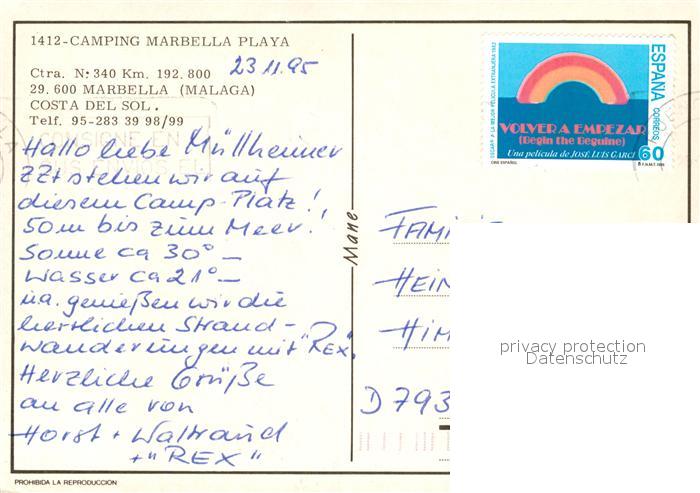 1412-CAMPING MARBELLA PLAYA
Ctra. N: 340 Km. 192. 800
29. 600 MARBELLA (MALAGA)
COSTA DEL SOL.
Telf. 95-283 39 98/99
23.11.95
CONSIGNE EN
Hallo liebe Müllheimer
ZZt stehen wir auf
diesem Camp-Platz!
50m bis zum Meer!
Sonne ca 30° –
Wasser ca 21° –
u.a. genießen wir die
herrlichen Strand-
wanderungen mit "REX".
Herzliche Grüße
an alle von
Horst + Waltraud
+ "REX"
PROHIBIDA LA REPRODUCCION
Mane
OSCAR A LA MEJOR PELICULA EXTRANJERA 1982
ESPAÑA
CORREOS
VOLVER A EMPEZAR
(Begin the Beguine)
Una película de JOSÉ LUIS GARCI
60
CINE ESPAÑOL
FAMI
HEIN
HIM
D 793
privacy protection
Datenschutz